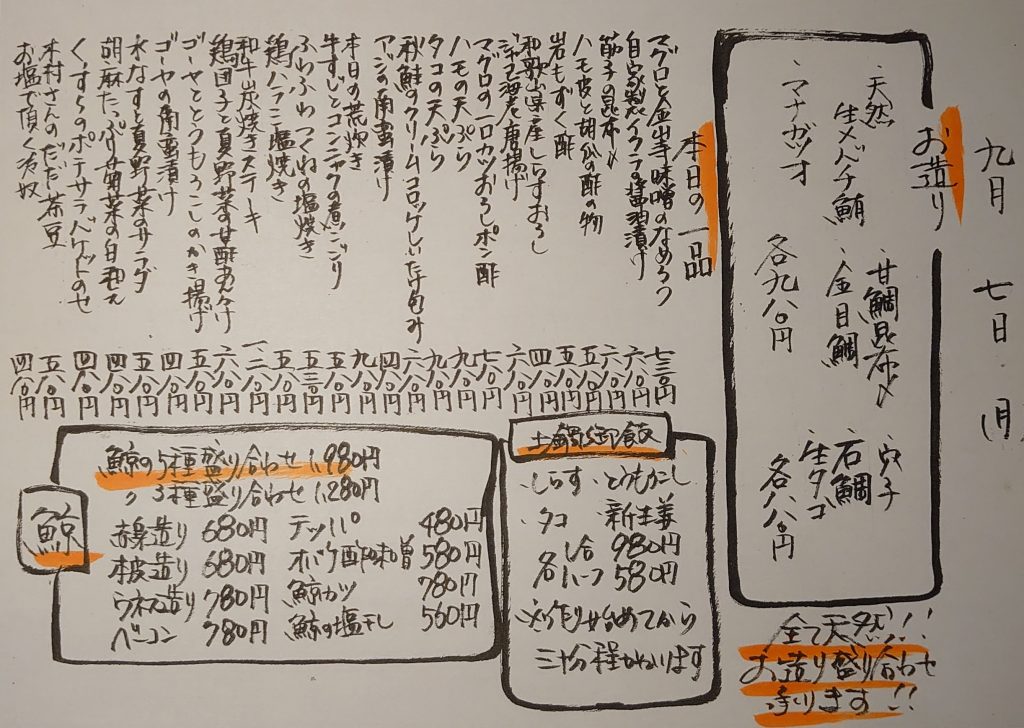 九月 七日 (月)
お造り
・天然 生メバチ鮪
・マナガツオ
各九八〇円
・甘鯛昆布〆
・金目鯛
・穴子
・石鯛
・生タコ
各八八〇円
全て天然!!
お造り盛り合わせ
承ります!!
本日の一品
マグロと金山寺味噌のなめろう 七三〇円
自家製イクラの醤油漬け 六八〇円
筋子の昆布〆 六八〇円
ハモ皮と胡瓜の酢の物 五八〇円
岩もずく酢 五八〇円
和歌山県産しらすおろし 四八〇円
海老唐揚げ 六八〇円
マグロの一口カツおろしポン酢 七八〇円
ハモの天ぷら 九八〇円
タコの天ぷら 九八〇円
秋鮭のクリームコロッケしいたけ包み
南蛮漬け
本日の荒炊き
牛すじとコンニャクの煮こごり
ふわふわつくねの塩焼き
鶏ハラミ塩焼き
和牛炭焼きステーキ
鶏団子と夏野菜の甘酢あんかけ
ゴーヤととうもろこしのかき揚げ
ゴーヤの南蛮漬け
水なすと夏野菜のサラダ
胡麻たっぷり 菜の白和え
くずらのポテサラバゲットのせ
木村さんのだだ茶豆
お塩で頂く冷奴 四八〇円
土鍋御飯
・しらす ・とうもろこし
・タコ ・新生姜
各一合 980円
各ハーフ 580円
※作り始めてから
三十分程かかります
鯨
鯨の5種盛り合わせ 1,980円
〃 3種盛り合わせ 1,280円
赤身造り 680円
本皮造り 680円
ウネス造り 780円
ベーコン 780円
テッパ 480円
オバケ酢味噌 580円
鯨カツ 780円
鯨の塩干し 560円